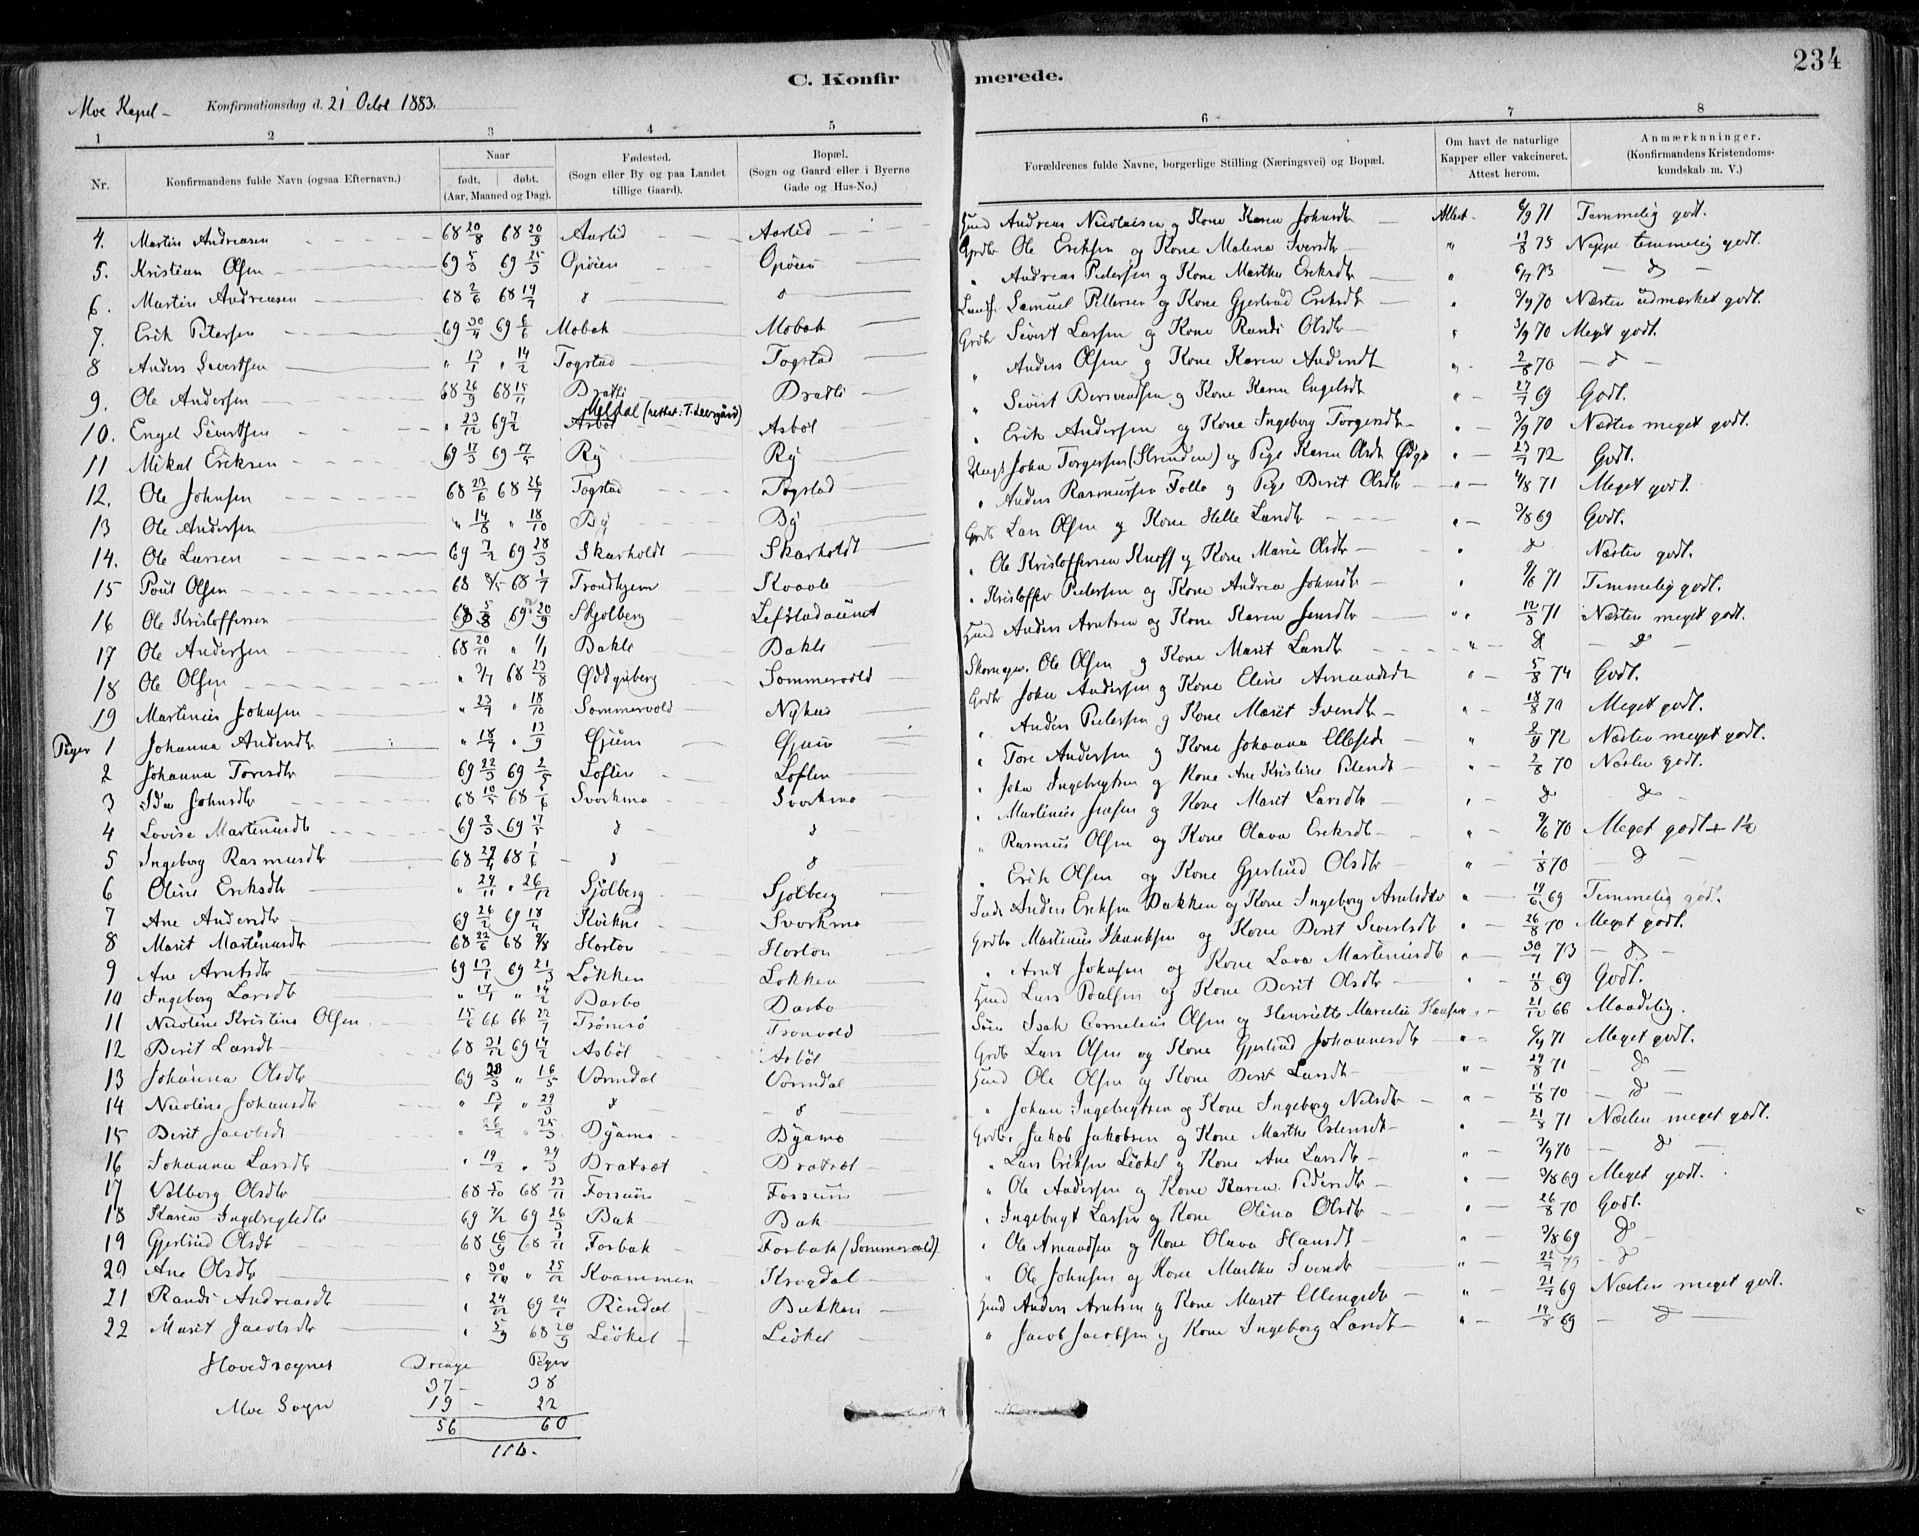 C. Konfirmerede.
234
Moe Kapel - Konfirmationsdag d. 21 Octbr 1883.
1 2 3 4 5 6 7 8
Nr. Konfirmandens fulde Navn (ogsaa Efternavn.) Naar født. døbt. (Aar, Maaned og Dag). Fødested. (Sogn eller By og paa Landet tillige Gaard). Bopæl. (Sogn og Gaard eller i Byerne Gade og Hus-No.) Forældrenes fulde Navne, borgerlige Stilling (Næringsvei) og Bopæl. Om havt de naturlige Kapper eller vakcineret. Attest herom. Anmærkninger. (Konfirmandens Kristendomskundskab m. V.)
4. Martin Andreasen 68 20/8 68 20/9 Aarlid Aarlid Huusmd Andreas Nicolaisen og Kone Karen Johnsdtr Attest 6/9 71 Temmelig godt.
5. Kristian Olsen 69 5/3 69 25/3 Opøien Opøien Grdbr Ole Eriksen og Kone Malena Iversdtr " 13/8 75 Neppe temmelig godt.
6. Martin Andreasen 68 2/6 68 19/7 d d " Andreas Pedersen og Kone Martha Eriksdtr " 6/7 73 d
7. Erik Petersen 69 30/4 69 6/6 Mobak Mobak Samuel Pettersen og Kone Gjertrud Eriksdtr " 3/9 70 Næsten udmærket godt
8 Anders Sivertsen " 13/1 " 14/2 Togstad Togstad Grdbr Sivert Larsen og Kone Randi Olsdtr " 3/9 70 Meget godt.
9. Ole Andersen 68 26/9 68 15/11 Dratli Dratli " Anders Olsen og Kone Karen Andersdtr " 2/8 70 d
10. Engel Sivertsen " 23/12 69 7/2 Asbøl Meldal (rettet: T. Leersgård) Asbøl " Sivert Bersvendsen og Kone Karen Engelsdtr 27/7 69 Godt.
11 Mikal Eriksen 69 17/3 69 7/5 Ry Ry " Erik Andersen og Kone Ingeborg Torgersdtr " 3/9 70 Næsten meget godt.
12. Ole Johnsen 68 23/6 68 26/7 Togstad Togstad Ungk John Torgersen (Strinden) og Pige Karen Olsdtr " 23/7 72 Godt.
13 Ole Andersen " 14/8 " 18/10 By By " Anders Rasmussen Follo og Pige Berit Olsdtr " 4/8 71 Meget godt.
14. Ole Larsen 69 7/2 69 28/3 Skarholdt Skarholdt Grdb Lars Olsen og Kone Helle Larsdtr " 3/8 69 Godt.
15 Poul Olsen 68 68 1/7 Trondhjem Kvaale " Ole Kristoffersen Knoff og Kone Marie Olsdtr " d Næsten godt.
16 Ole Kristoffersen 68 5/8 69 20/9 Skjølberg Lefstadaunet " Kristoffer Pedersen og Kone Andrea Johnsdtr " 9/6 71 Temmelig godt.
17 Ole Andersen 68 20/11 " 1/1 Bakle Bakle Husmd Anders Arntsen og Kone Karen Jensdtr " 12/8 71 Næsten meget godt.
18 Ole Olsen " 3/7 68 23/8 Øddgiberg Sommervold Skomager Ole Olsen og Kone Marit Larsdtr " d d
19 Martinius Johnsen " 23/7 " 18/10 Sommervold Nyhus Grdbr John Andersen og Kone Eline Amundsdtr " 5/8 74 Godt.
Piger 1 Johanna Andersdtr " 18/7 " 13/9 Øjum Øjum " Anders Pedersen og Kone Marit Svendsdtr " 18/8 70 Meget godt.
2 Johanna Toresdtr 69 22/3 69 2/5 Loften Loften " Tore Andersen og Kone Johanna Ellefsdtr " 2/9 72 Næsten meget godt.
3 Ida Johnsdtr 68 10/5 68 5/6 Svorkmo Svorkmo " John Ingebrigtsen og Kone Ane Kristine Petersdtr " 2/8 70 Næsten godt.
4 Lovise Martinusdtr 69 2/3 69 17/5 d d " Martinius Jensen og Kone Marit Larsdtr " d d
5 Ingeborg Rasmusdtr 68 29/4 68 1/6 d d " Rasmus Olsen og Kone Olava Eriksdtr " 9/6 70 Meget godt + 1½
6 Oline Eriksdtr " 24/11 " 26/12 Sjølberg Sjølberg " Erik Olsen og Kone Gjertrud Olsdtr " 1/8 70 d
7 Ane Andersdtr 69 26/2 69 18/4 Kvikne Svorkmo Inds Anders Eriksen Bakken og Kone Ingeborg Arntsdtr " 19/6 69 Temmelig godt.
8 Marit Martinusdtr 68 22/6 68 9/8 Horton Horton Grdbr Martinius Henriksen og Kone Berit Sivertsdtr " 26/8 70 Meget godt.
9 Ane Arntsdtr 69 13/1 69 21/3 Løkken Løkken " Arnt Johnsen og Kone Lava Martinusdtr " 30/7 73 d
10 Ingeborg Larsdtr " 17/1 " 14/2 Barbo Barbo Husmd Lars Poulsen og Kone Berit Olsdtr " 11/8 69 Godt.
11 Nicoline Kristine Olsen 15/6 66 66 22/7 Tromsø Tronvold Isak Cornelius Olsen og Henriette Marcelie Hansen " 21/12 66 Maadelig.
12 Berit Larsdtr 68 31/12 69 14/2 Asbøl Asbøl Grdb Lars Olsen og Kone Gjertrud Johannesdtr " 6/9 71 Meget godt.
13 Johanna Olsdtr 69 28/3 " 16/5 Vormdal Vormdal Husmd Ole Olsen og Kone Berit Larsdtr " 29/8 71 d
14 Nicoline Johansdtr " 13/1 " 29/3 d d " Johan Ingebrigtsen og Kone Ingeborg Nilsdtr " 11/8 70 d
15 Berit Jacobsdtr " 26/2 " 25/3 Dyamo Dyamo Grdbr Jakob Jakobsen og Kone Marthe Estensdtr " 21/8 71 Næsten meget godt.
16 Johanna Larsdtr " 19/2 " 29/3 Dratset Dratset " Lars Eriksen Liøkel og Kone Ane Larsdtr " 3/9 70 d
17 Valborg Olsdtr 68 5/10 68 23/11 Fossum Fossum " Ole Andersen og Kone Karen Pedersdtr " 3/8 69 Meget godt.
18 Karen Ingebrigtsdtr 69 7/2 69 26/3 Bak Bak " Ingebrigt Larsen og Kone Olina Olsdtr " 26/8 70 Godt.
19 Gjertrud Olsdtr 68 16/9 68 1/11 Forbak Forbak (Sommervold) " Ole Amundsen og Kone Olava Hansdtr " 3/8 69 d
20 Ane Olsdtr " 30/10 " 25/12 Kvammen Krogdal " Ole Johnsen og Kone Martha Svendsdtr " 22/7 79 d
21 Randi Andreasdtr " 24/12 69 24/1 Rendal Bakken Husmd Anders Arntsen og Kone Marit Ellengsdtr " 21/7 69 Næsten meget godt.
22 Marit Jacobsdtr " 5/9 68 20/9 Liøkel Liøkel " Jacob Jacobsen og Kone Ingeborg Larsdtr " 19/8 69 d
Hovedsognet Drenge 37 - Piger 38
Moe Sogn 19 - 22
56 60
116.